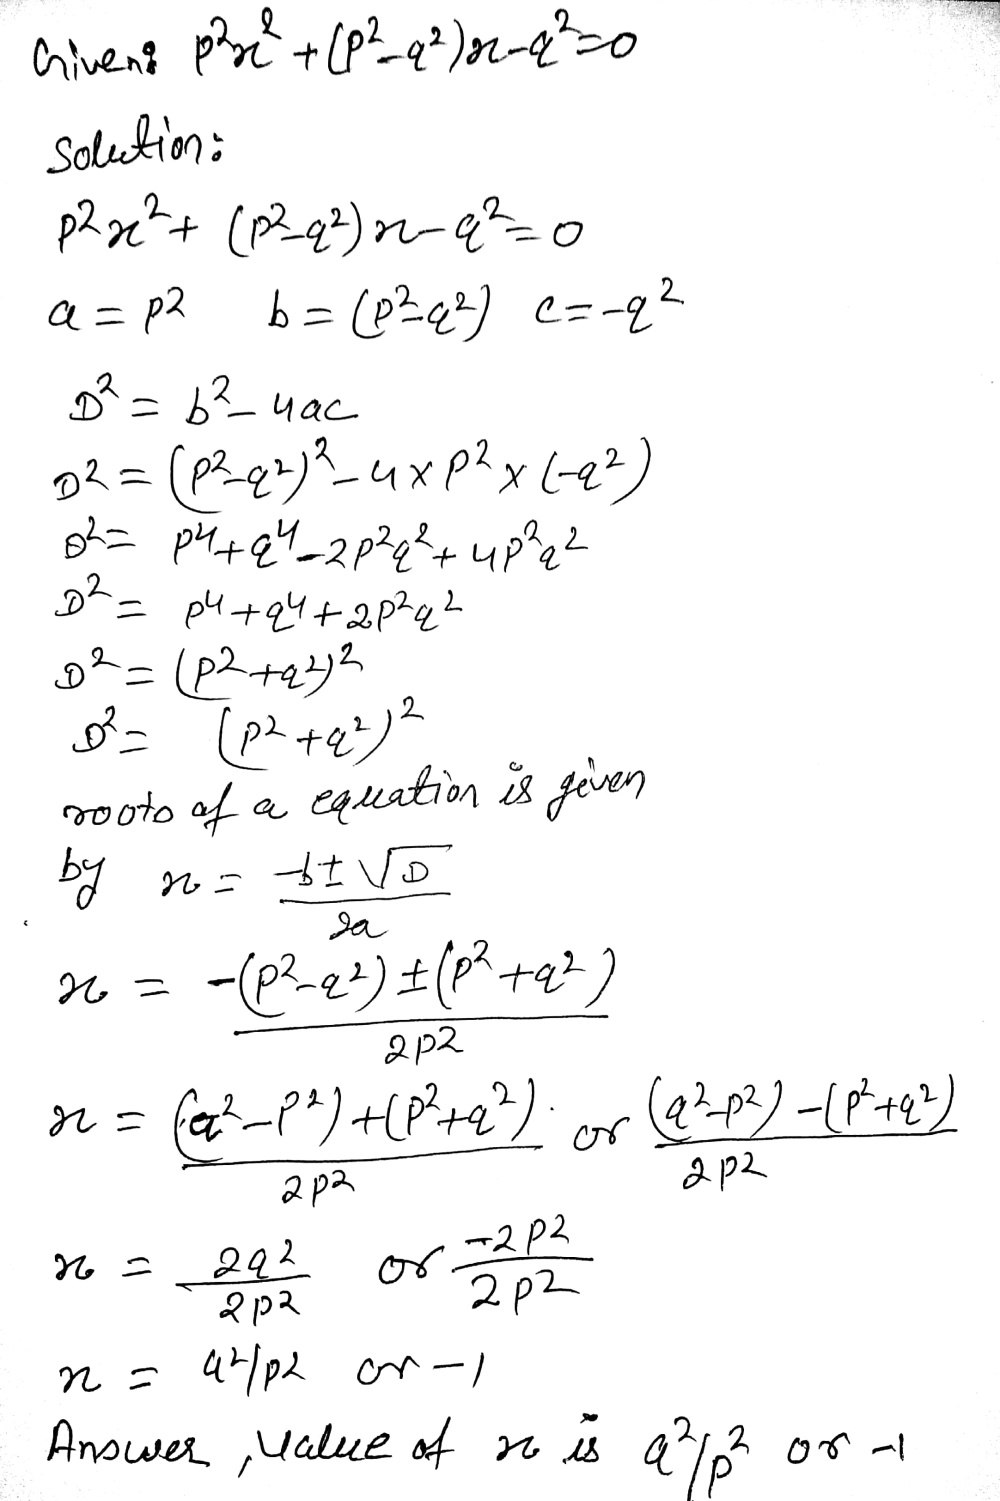 Given: p²x² + (p²-q²)x-q²=0
Solution:
p²x² + (p²-q²)x-q²=0
a = p² b = (p²-q²) c=-q²
D² = b²-4ac
D² = (p²-q²)²-4×p²×(-q²)
D² = p⁴+q⁴-2p²q²+4p²q²
D² = p⁴+q⁴+2p²q²
D² = (p²+q²)²
D² = (p²+q²)²
roots of a equation is given
by x = -b±√D / 2a
x = -(p²-q²)±(p²+q²) / 2p²
x = (q²-p²)+(p²+q²) / 2p² or (q²-p²)-(p²+q²) / 2p²
x = 2q² / 2p² or -2p² / 2p²
x = q²/p² or -1
Answer, value of x is q²/p² or -1